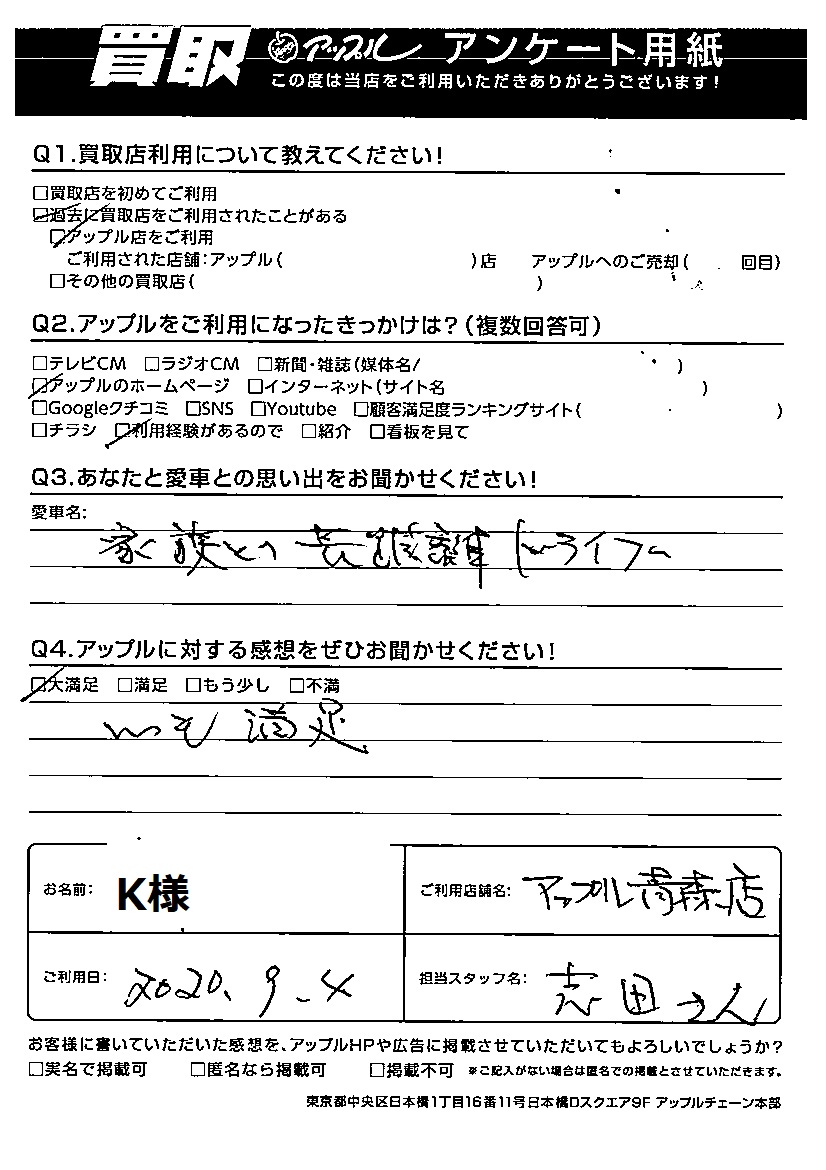 買取 アップル アンケート用紙
この度は当店をご利用いただきありがとうございます!
Q1.買取店利用について教えてください!
□買取店を初めてご利用
☑過去に買取店をご利用されたことがある
☑アップル店をご利用
ご利用された店舗:アップル( )店 アップルへのご売却( 回目)
□その他の買取店( )
Q2.アップルをご利用になったきっかけは?(複数回答可)
□テレビCM □ラジオCM □新聞・雑誌(媒体名/ )
☑アップルのホームページ □インターネット(サイト名 )
□Googleクチコミ □SNS □Youtube □顧客満足度ランキングサイト( )
□チラシ ☑利用経験があるので □紹介 □看板を見て
Q3.あなたと愛車との思い出をお聞かせください!
愛車名:
家族との長距離ドライブ
Q4.アップルに対する感想をぜひお聞かせください!
☑大満足 □満足 □もう少し □不満
いつも満足
お名前: K様 ご利用店舗名: アップル青森店
ご利用日: 2020.9.4 担当スタッフ名: 志田さん
お客様に書いていただいた感想を、アップルHPや広告に掲載させていただいてもよろしいでしょうか?
□実名で掲載可 □匿名なら掲載可 □掲載不可 ※ご記入がない場合は匿名での掲載とさせていただきます。
東京都中央区日本橋1丁目16番11号日本橋Dスクエア9F アップルチェーン本部